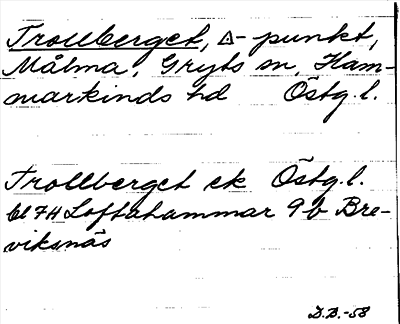 Trollberget, △-punkt,
Målma, Gryts sn, Ham-
markinds hd Östg.l.
Trollberget ek Östg.l.
bl 7H Loftahammar 9b Bre-
viksnäs
D.D.-58